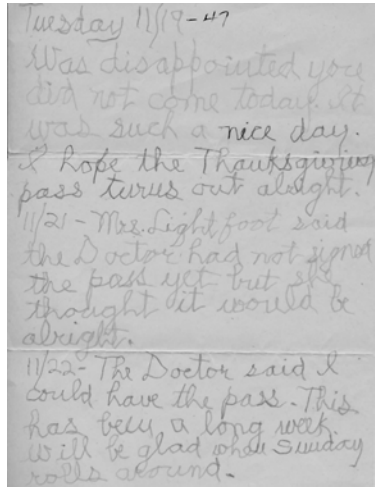 Tuesday 11/19-47
Was disappointed you
did not come today. It
was such a nice day.
I hope the Thanksgiving
pass turns out alright.
11/21- Mrs. Lightfoot said
the Doctor had not signed
the pass yet but she
thought it would be
alright.
11/22- The Doctor said I
could have the pass. This
has been a long week.
Will be glad when Sunday
rolls around.